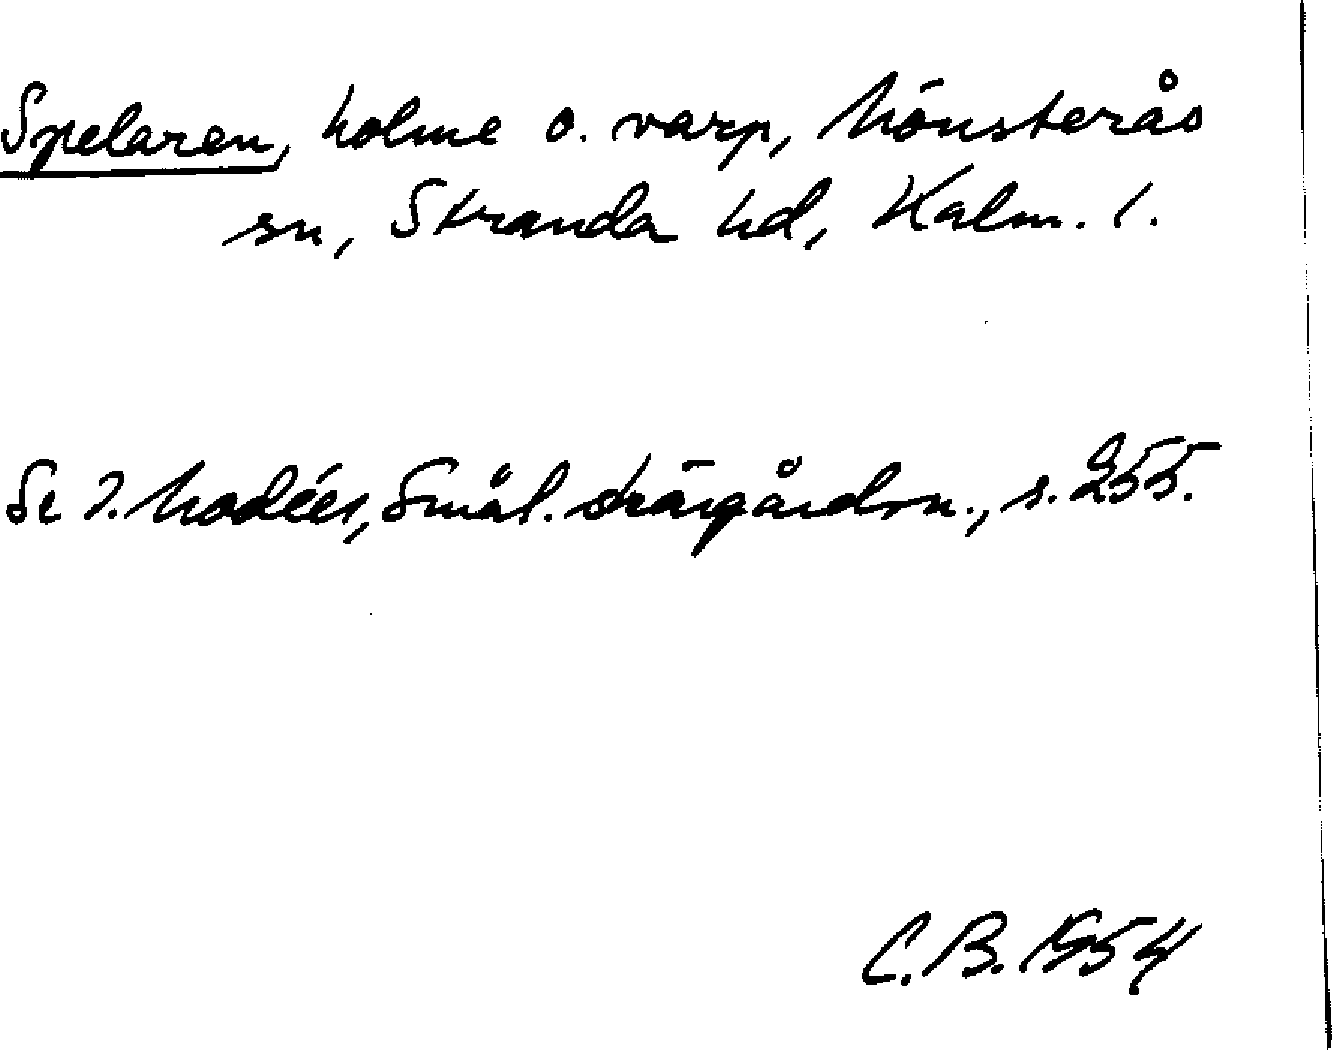 Spelaren, holme o. varp, Mönsterås
sn, Stranda hd, Kalm. l.
Se I. Modéer, Smål. skärgårdsn., s. 255.
C.B. 1954